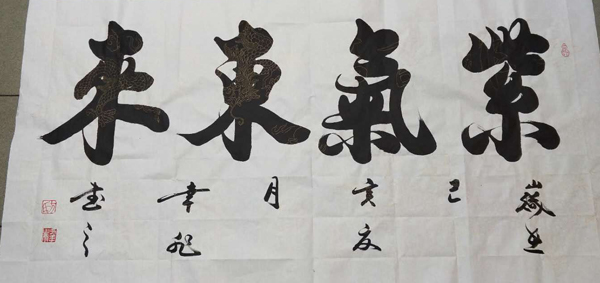 紫氣東來
歲在己亥夏月書